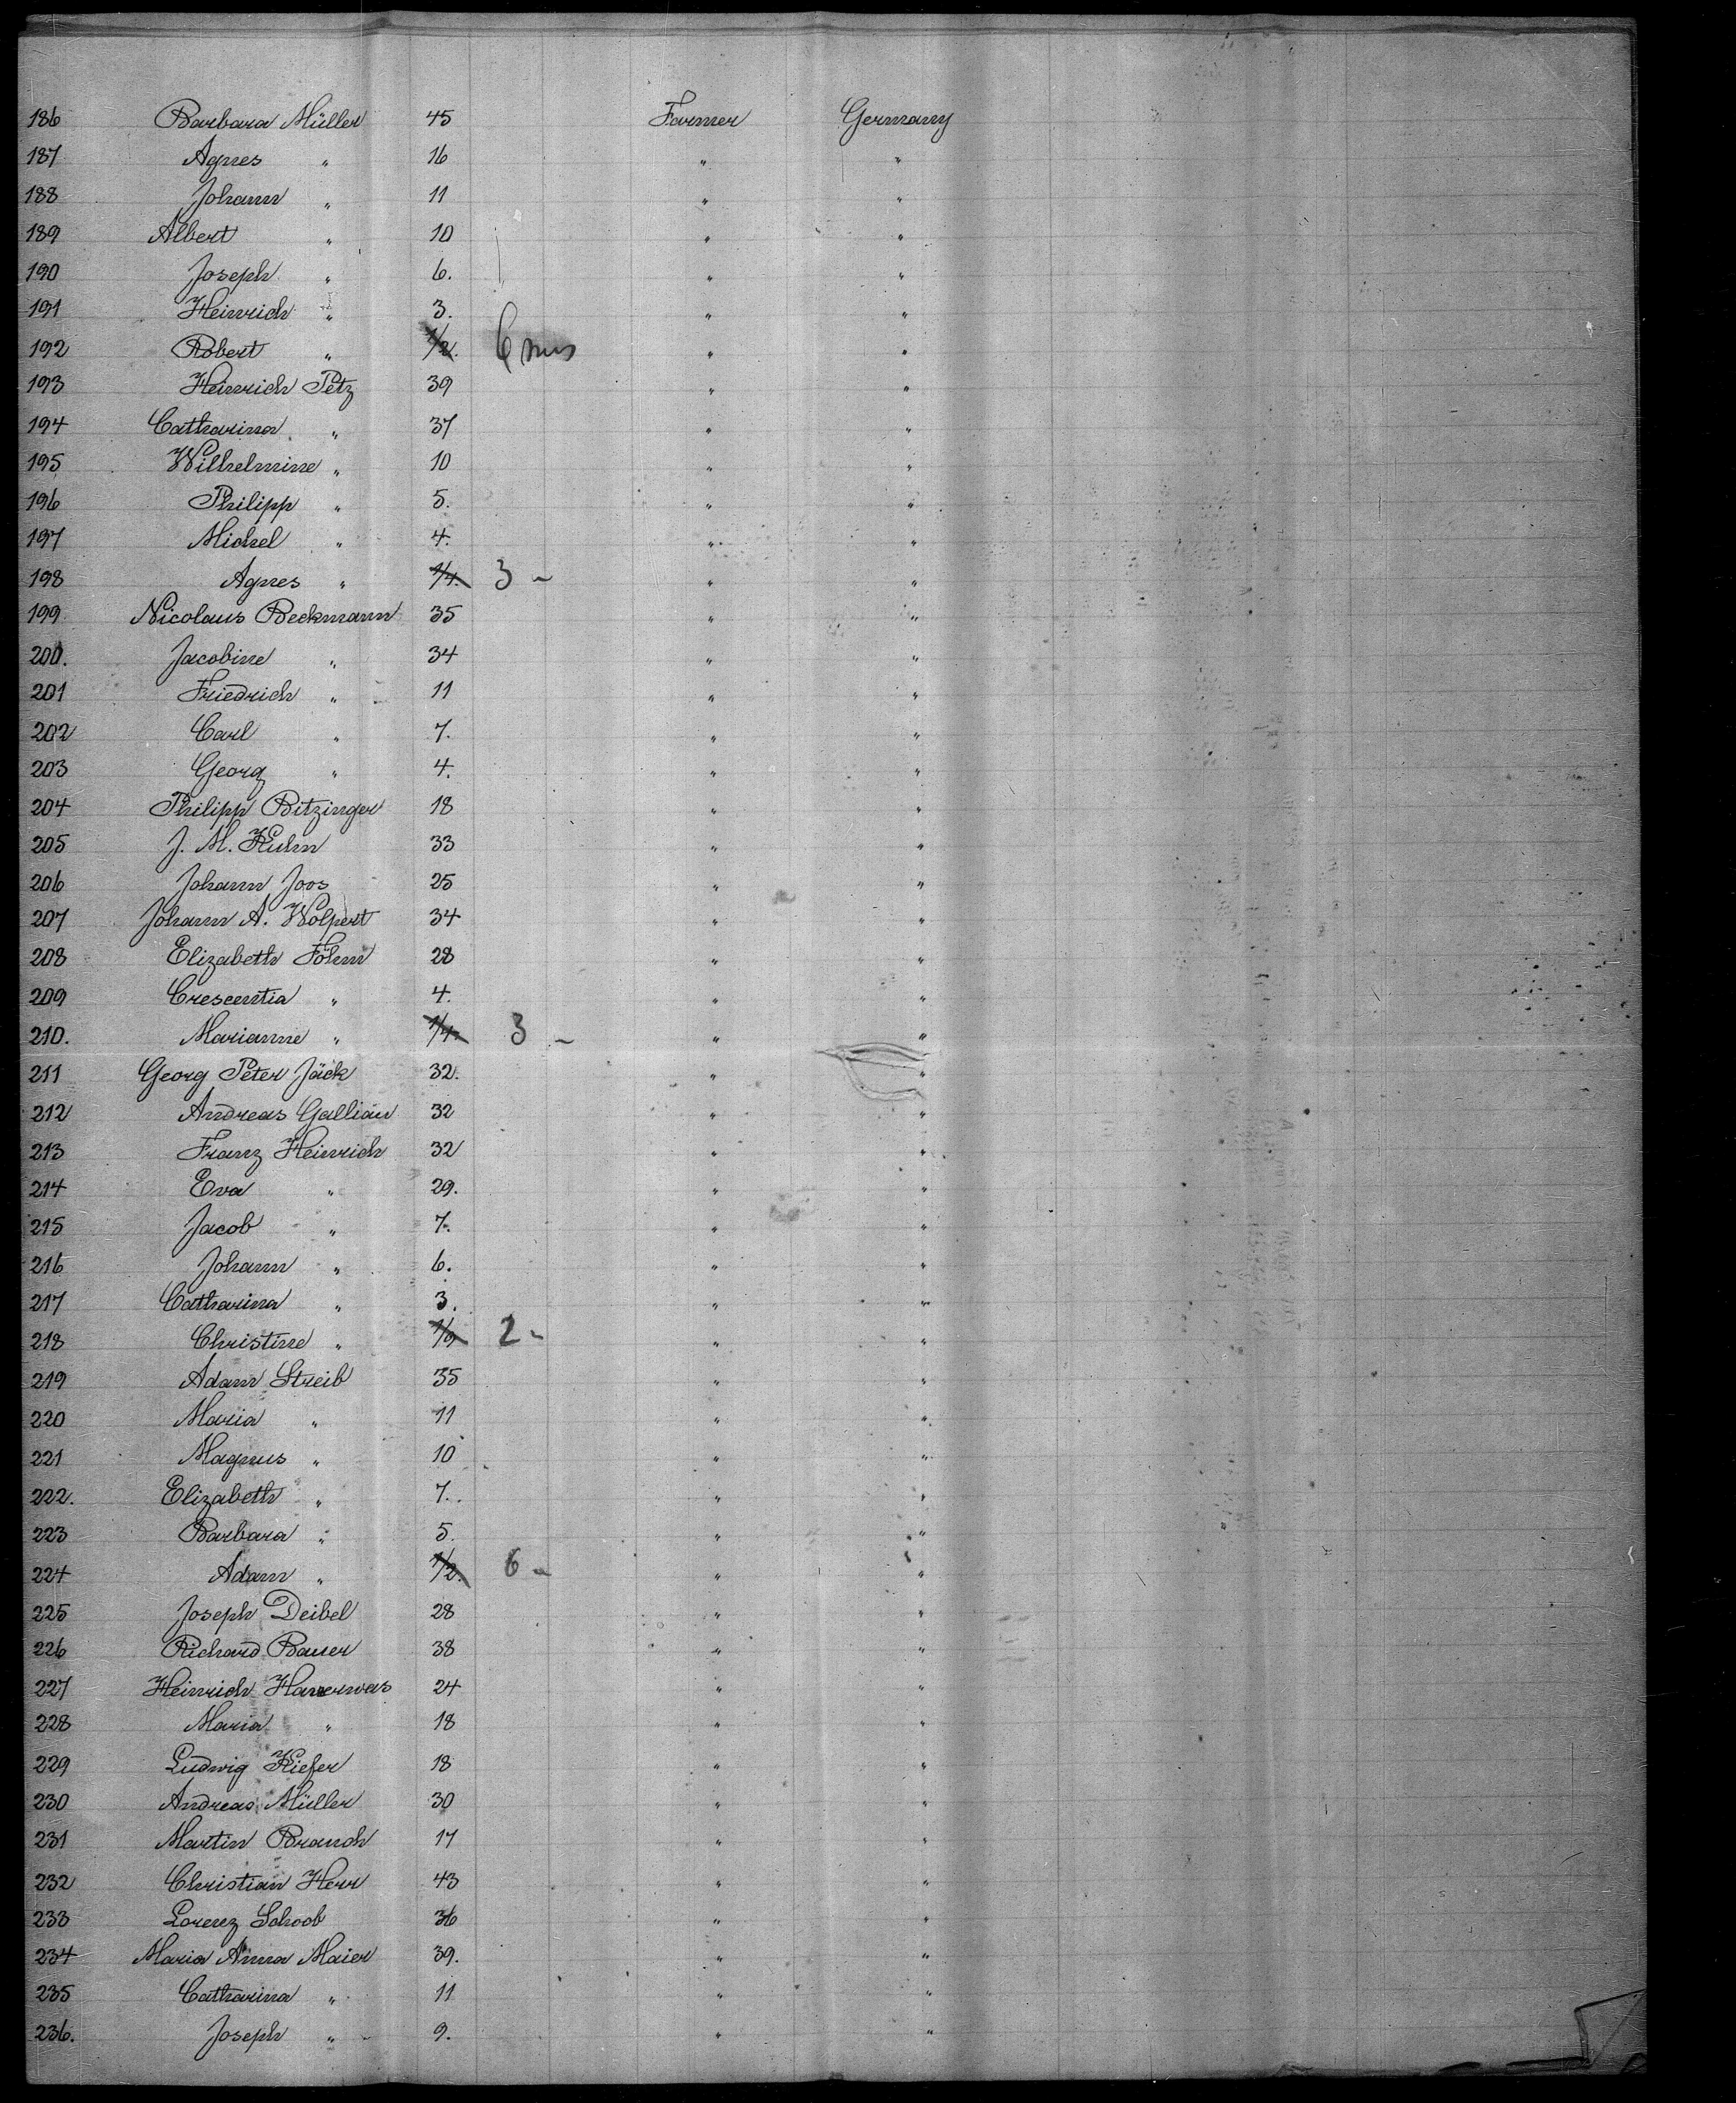 186 Barbara Müller 45 Farmer Germany
187 Agnes " 16 " "
188 Johann " 11 " "
189 Albert " 10 " "
190 Joseph " 6. " "
191 Heinrich " 3. " "
192 Robert " 1/2. 6 mos " "
193 Heinrich Petz 39 " "
194 Catharina " 37 " "
195 Wilhelmine " 10 " "
196 Philipp " 5. " "
197 Michel " 4. " "
198 Agnes " 1/4. 3 " " "
199 Nicolaus Beckmann 35 " "
200. Jacobine " 34 " "
201 Friedrich " 11 " "
202 Carl " 7. " "
203 Georg " 4. " "
204 Philipp Bitzinger 18 " "
205 J. M. Kuhn 33 " "
206 Johann Joos 25 " "
207 Johann A. Wolpert 34 " "
208 ElizabethFöhn 28 " "
209 Crescentia " 4. " "
210. Marianne " 1/4. 3 " " "
211 Georg Peter Jäck 32. " "
212 Andreas Gallian 32 " "
213 Franz Heinrich 32 " "
214 Eva " 29. " "
215 Jacob " 7. " "
216 Johann " 6. " "
217 Catharina " 3. " "
218 Christine " 2 " " "
219 Adam Streib 35 " "
220 Maria " 11 " "
221 Magnus " 10 " "
222. Elizabeth " 7. " "
223 Barbara " 5. " "
224 Adam " 1/2. 6 " " "
225 Joseph Deibel 28 " "
226 Richard Bauer 38 " "
227 Heinrich 24 " "
228 Maria " 18 " "
229 Ludwig Kiefer 18 " "
230 Andreas Müller 30 " "
231 Martin Brauch 17 " "
232 Christian Herr 43 " "
233 Lorenz Schoob 36 " "
234 Maria Anna Maier 39. " "
235 Catharina " 11 " "
236. Joseph " 9. " "